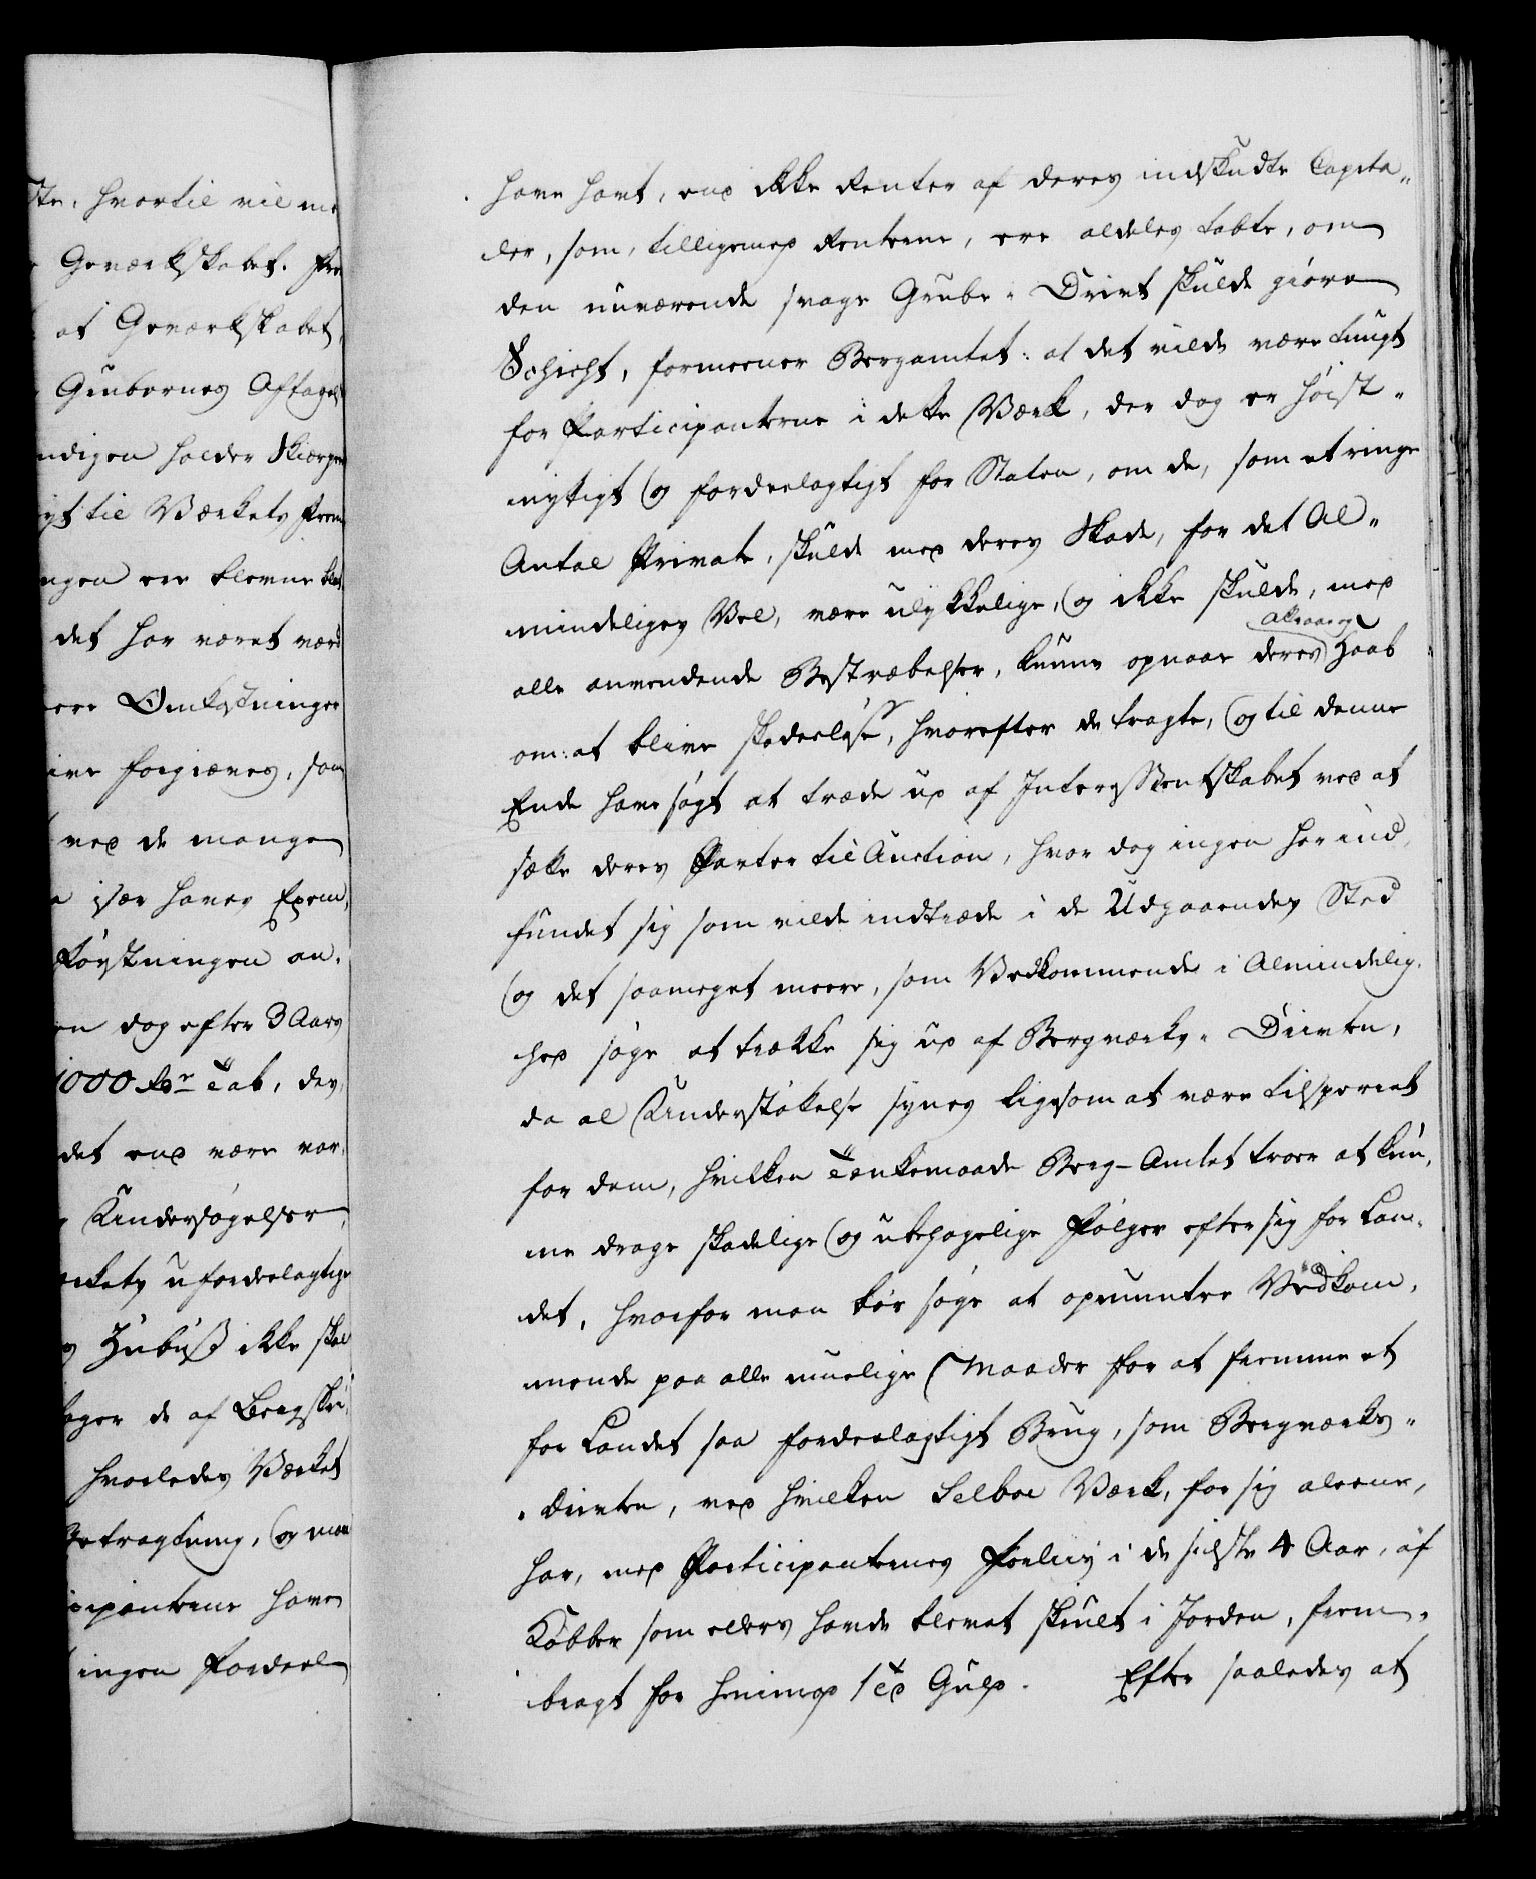 ste, hvortil vil me
Geværkskabet. Fre
at Geværkskabet,
Grubernes Aftagel
ndigen holder Skiærpe
yt til Værkets Frem
ngen ere blevne be
det har været værd
ere Omkostninger
ive forgieves, som
ved de mange
især haves Exem,
Røystningen an,
en dog efter 3 Aars
1000 Rdr Tab, des
det end være var,
Undersøgelser,
ærkets ufordeelagtige
Zubuß ikke skal
tager de af Bergskri,
hvorledes Værket
Betragtning, og man
icipanterne have
ingen Fordeel
have havt, end ikke Renter af deres indskudte Capita„
ler, som, tilligemed Renterne, ere aldeles tabte, om
den nuværende svage Grube-Drivt skulde giøre
Schicht, formeener Bergamtet: at det vilde være tungt
for Participanterne i dette Værk, der dog er høist-
nyttigt og fordeelagtigt for Staten, om de, som et ringe
Antal Private, skulde med deres Skade, for det Al„
mindeliges Vel, være ulykkelige, og ikke skulde, med
alle anvendende Bestræbelser, kunne opnaae deres attraaede Haab
om: at blive skadesløse, hvorefter de tragte, og til denne
Ende have søgt at træde ud af Interessentskabet ved at
sætte deres Parter til Auction, hvor dog ingen har ind,
fundet sig som vilde indtræde i de Udgaaendes Sted
og det saameget meere, som Vedkommende i Almindelig,
hed søge at trække sig ud af Bergværks-Drivten,
da al Understøttelse synes ligesom at være tilsperret
for dem, hvilken Tænkemaade Berg-Amtet troer at kun,
ne drage skadelige og ubehagelige Følger efter sig for Lan„
det, hvorfor man bør søge at opmuntre Vedkom,
mende paa alle muelige Maader for at fremme et
for Landet saa fordeelagtigt Brug, som Bergværks-
Drivten, ved hvilken Selboe Værk, for sig aleene,
har, med Participanternes Forliis i de sidste 4 Aar, af
Kobber som ellers havde blevet skiult i Jorden, frem„
bragt for henimod 1 Td Guld. Efter saaledes at